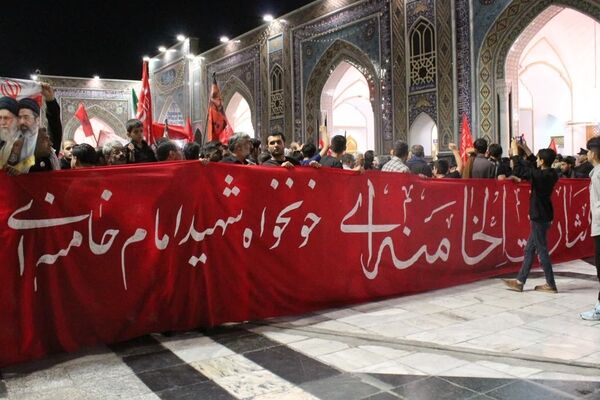 لثارات الخامنه‌ای
خونخواه شهید امام خامنه‌ای